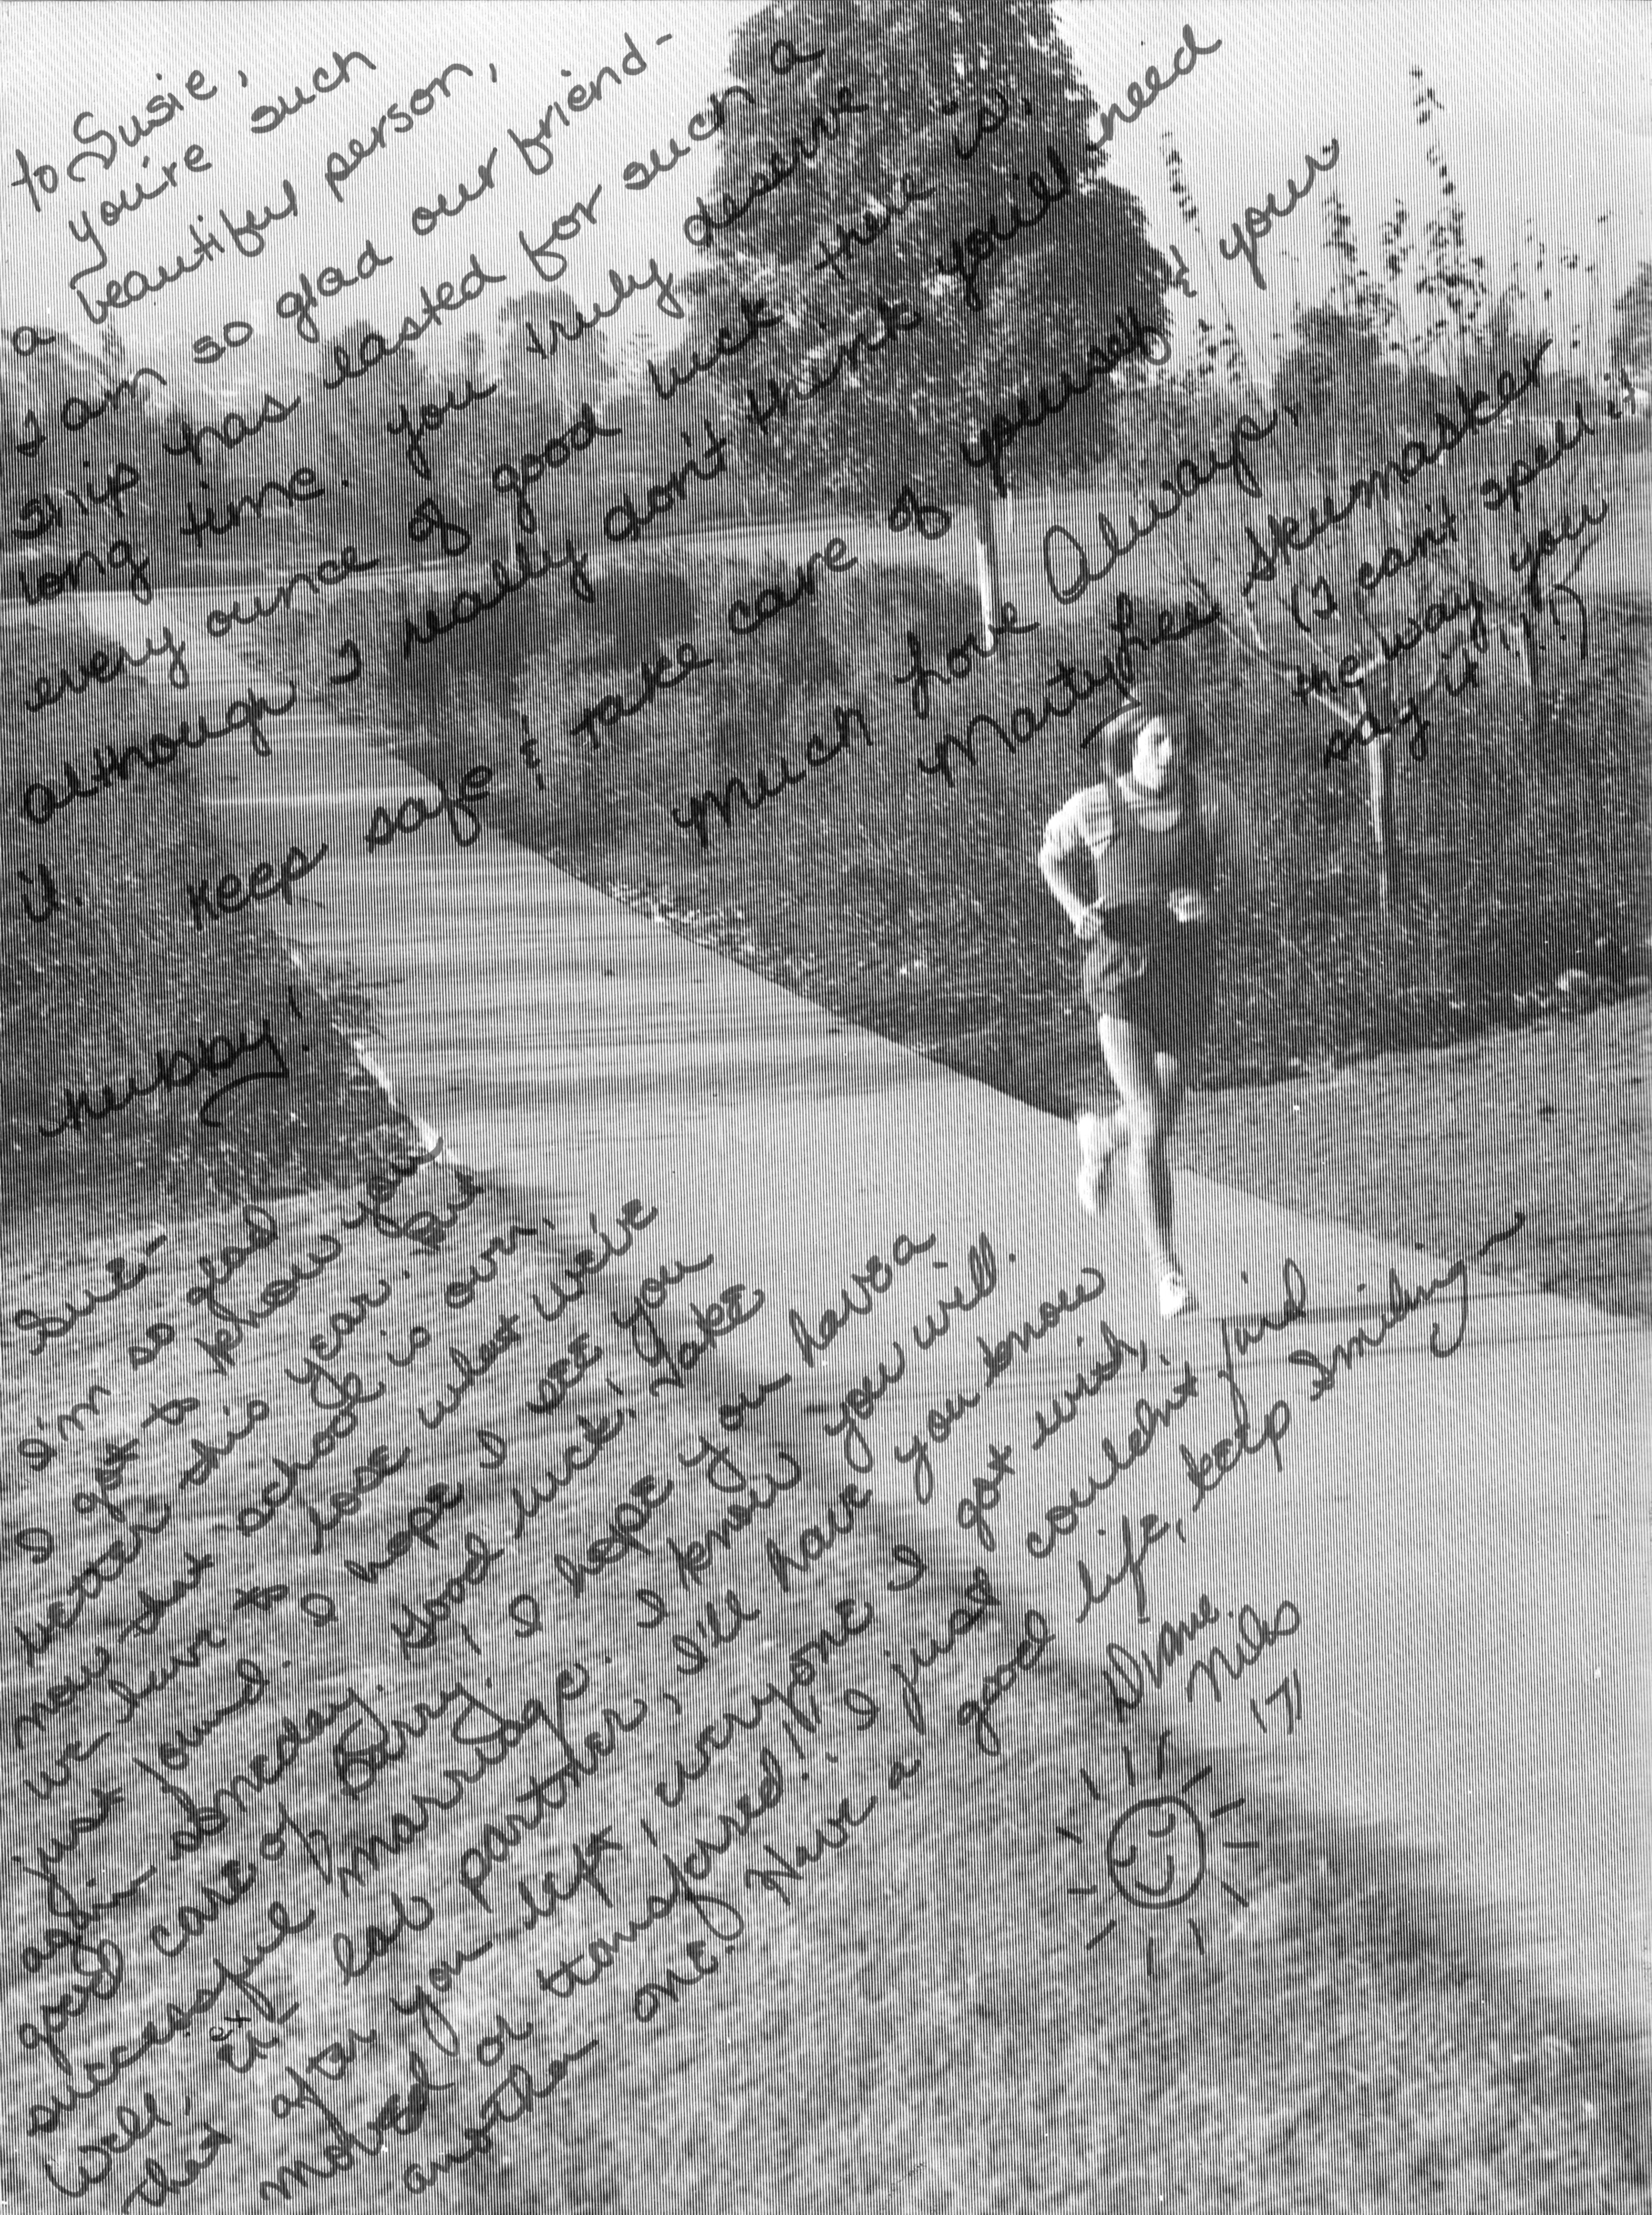 to Susie,
you're such
a beautiful person,
I am so glad our friend-
ship has lasted for such a
long time. you truly deserve
every ounce of good luck there is,
although I really don't think you'll need
it. keep safe & take care of yourself & your
hubby!
much love Always,
Marty Lee
(I can't spell it
the way you
say it!!!!)
Sue-
I'm so glad
I got to know you
better this year. But
now that school is over,
we have to lose what we've
just found. I hope I see you
again someday. Good luck, take
good care of Barry, I hope you have a
successful marriage. I know you will.
Well, ex lab partner, I'll have you know
that after you left, everyone I got with,
moved or transfored!! I just couldn't find
another one. Have a good life, keep Smiling~
Diane
Niles
'71